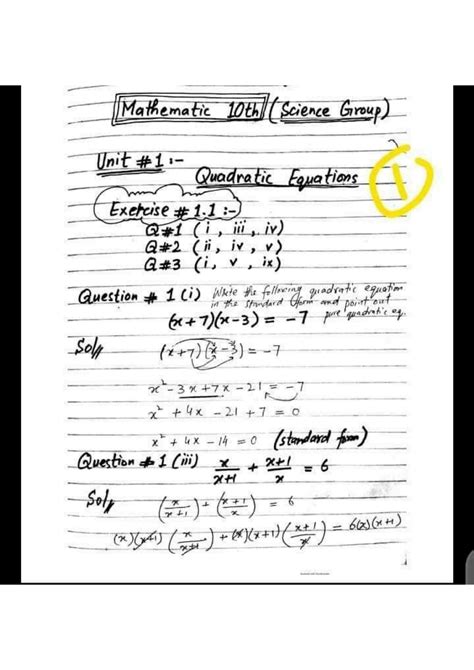 Mathematic 10th (Science Group)
Unit #1 :-
Quadratic Equations
1
Exercise # 1.1 :-
Q#1 (i, iii, iv)
Q#2 (ii, iv, v)
Q#3 (i, v, ix)
Question # 1 (i) Write the following quadratic equation
in the standard form and point out
pure quadratic eq.
(x+7)(x-3) = -7
Sol,
(x+7)(x-3) = -7
x² - 3x + 7x - 21 = -7
x² + 4x - 21 + 7 = 0
x² + 4x - 14 = 0 (standard form)
Question # 1 (iii) x/x+1 + x+1/x = 6
Sol,
(x/x+1) + (x+1/x) = 6
(x)(x+1)(x/x+1) + (x)(x+1)(x+1/x) = 6(x)(x+1)